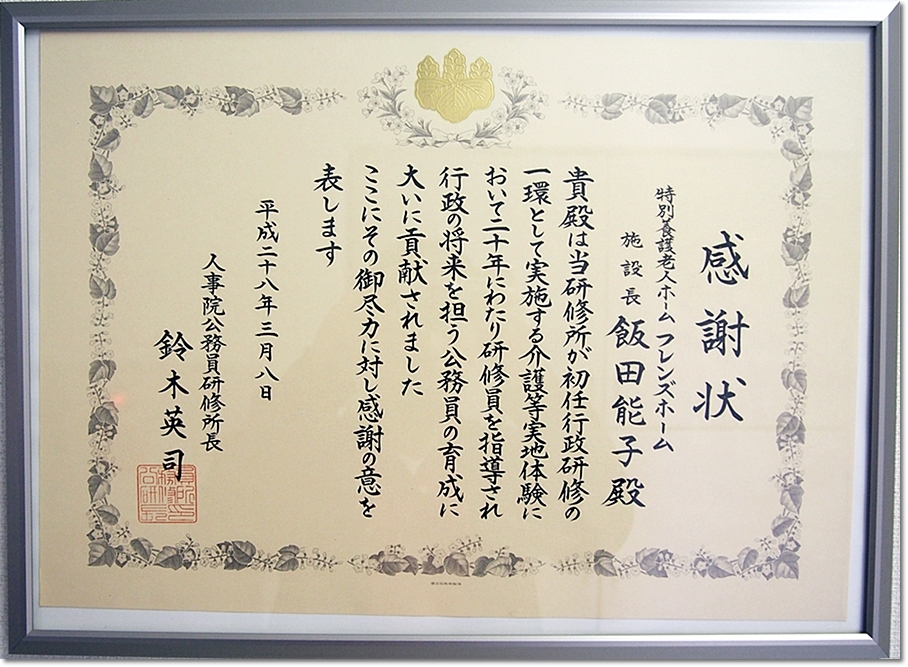 感謝状
特別養護老人ホーム フレンズホーム
施設長 飯田能子殿
貴殿は当研修所が初任行政研修の
一環として実施する介護等実地体験に
おいて二十年にわたり研修員を指導され
行政の将来を担う公務員の育成に
大いに貢献されました
ここにその御尽力に対し感謝の意を
表します
平成二十八年三月八日
人事院公務員研修所長
鈴木英司